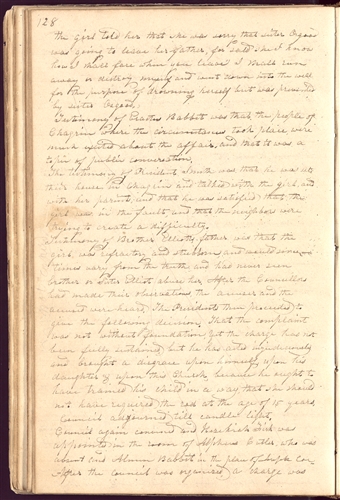 128
The girl told her that she was sorry that sister Orpas
was going to leave her father, for said she I know
how I shall fare when you leave I shall run
away or destroy myself and went down into the well
for the purpose of drowning herself but was prevented
by sister Orpas.
Testimony of Erastus Babbit was that the people of
Chagrin where the circumstances took place were
much excited about the affair, and that it was a
topic of public conversation.
The testimony of President Smith was that he was at
their house in Chagrin and talked with the girl, and
with her parents, and that he was satisfied that the
girl was in the fault, and that the neighbors were
trying to create a difficulty.
Testimony of Brother Elliott's father was that the
girl was refractory and stubborn and would some-
times vary from the truth and had never seen
brother or sister Elliot abuse her. After the Councellors
had made their observations, the accuser and the
accused were heard. The Presidents then proceeded to
give the following decision, That the complaint
was not without foundation, yet the charge has not
been fully sustained, but he has acted injudiciously
and brought a disgrace upon himself, upon his
daughter & upon this Church, because he ought to
have trained his child in a way that she should
not have required the rod at the age of 15 years.
Council adjourned till candle light.
Council again convened and Hezekiah Fisk was
appointed in the room of Alpheus Cutler, who was
absent and Almon Babbit in the place of Joseph Coe.
After the council was organized a charge was